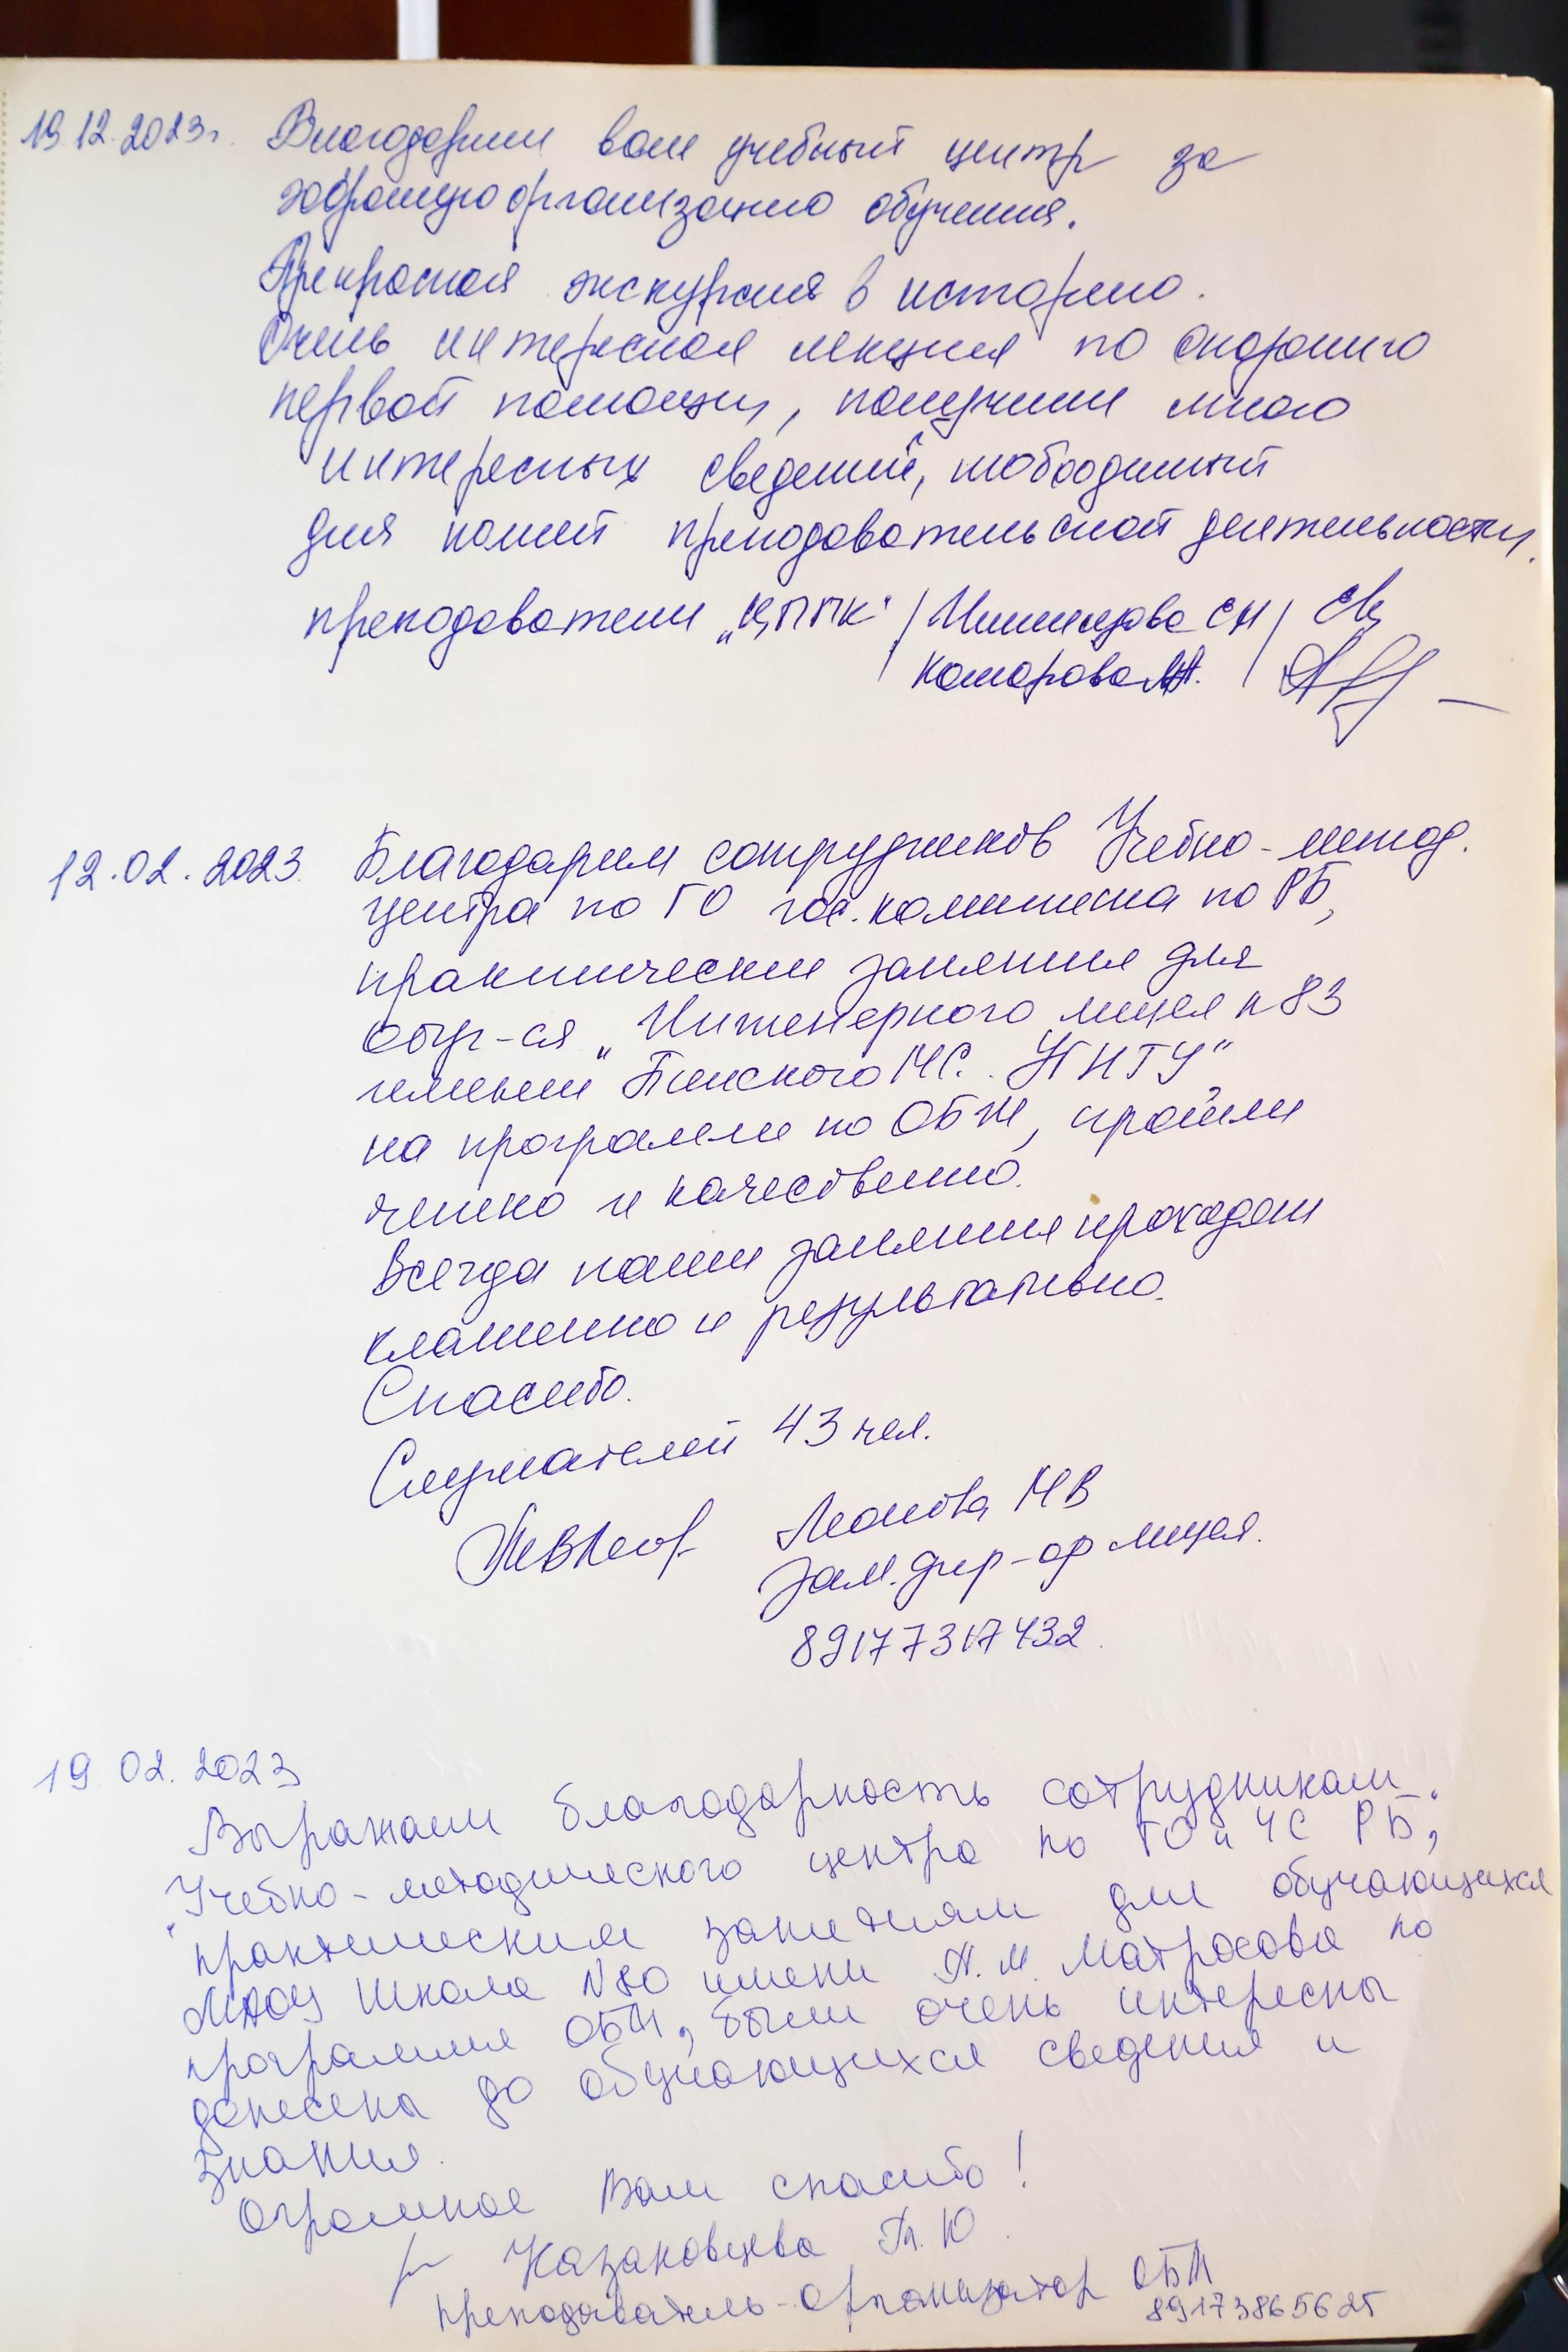 19.12.2023г. Благодарим ваш учебный центр за
хорошую организацию обучения.
Прекрасная экскурсия в историю.
Очень интересная лекция по оказанию
первой помощи, получили много
интересных сведений, необходимый
для нашей преподавательской деятельности.
преподаватели „ЦППК" / СН /
Комарова
12.02.2023 Благодарим сотрудников Учебно-метод.
центра по ГО гос. комитета по РБ,
практически занятия для
обуч-ся „Инженерного лицея N 83
имени Пинского М.С. УГНТУ"
на программе по ОБЖ, прошли
четко и качественно.
Всегда наши занятия проходят
слаженно и результативно.
Спасибо.
Слушателей 43 чел.
Леонова МВ
зам. дир-ор лицея.
89177317432
19 02. 2023
Выражаем благодарность сотрудникам
Учебно-методического центра по ГО и ЧС РБ,
практическим занятиям для обучающихся
МАОУ Школа N80 имени А. М. Матросова по
программе ОБЖ, были очень интересны
донесены до обучающихся сведения и
знания.
Огромное Вам спасибо!
Казаковцева Ю.
преподаватель-организатор ОБЖ
89173865625